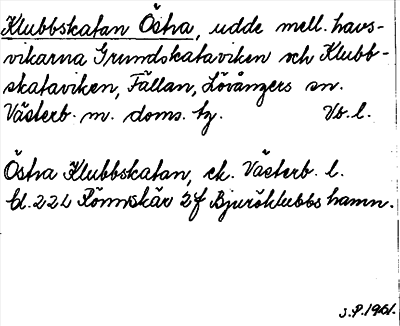 Klubbskatan Östra, udde mell. havs-
vikarna Grundskataviken och Klubb-
skataviken, Fällan, Lövångers sn.
Västerb. m. doms. tg. Vb. l.
Östra Klubbskatan, ek. Västerb. l.
bl. 22L Rönnskär 2f Bjuröklubbs hamn.
J.P. 1961.